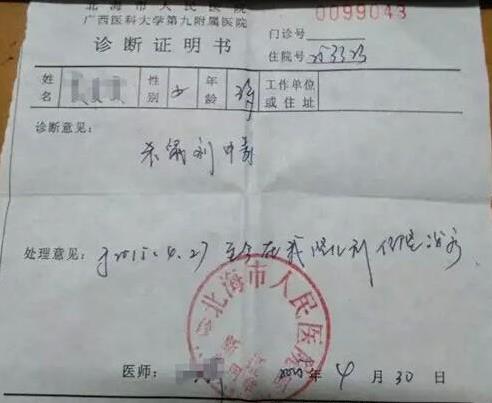 北海市人民医院
广西医科大学第九附属医院
0099043
诊断证明书
门诊号
住院号 253323
姓名 性别 女 年龄 工作单位或住址
诊断意见:
杀鼠剂中毒
处理意见: 于2015.4.27 至今在我 住院治疗
北海市人民医院
医师: 年 4 月 30 日